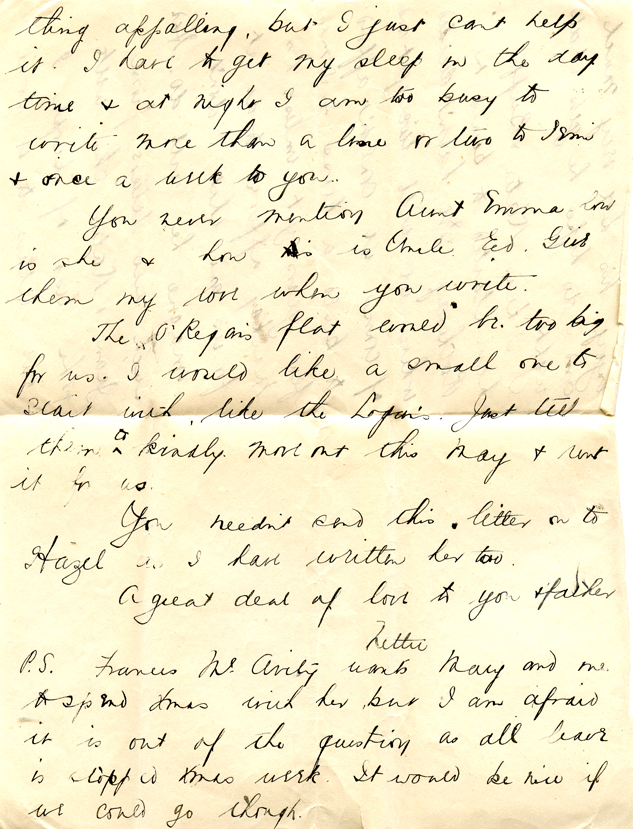 thing appalling, but I just can't help
it. I have to get my sleep in the day
time & at night I am too busy to
write more than a line or two to
& once a week to you.
You never mention Aunt Emma how
is she & how is Uncle Ed. Give
them my love when you write.
The O'Regan's flat would be too big
for us. I would like a small one to
start with, like the Logan's. Just tell
them to kindly move out this May & rent
it for us.
You needn't send this letter on to
Hazel as I have written her too.
A great deal of love to you & father
Nettie
P.S. Frances Mc Avity wants Mary and me
to spend Xmas with her but I am afraid
it is out of the question as all leave
is stopped Xmas week. It would be nice if
we could go though.